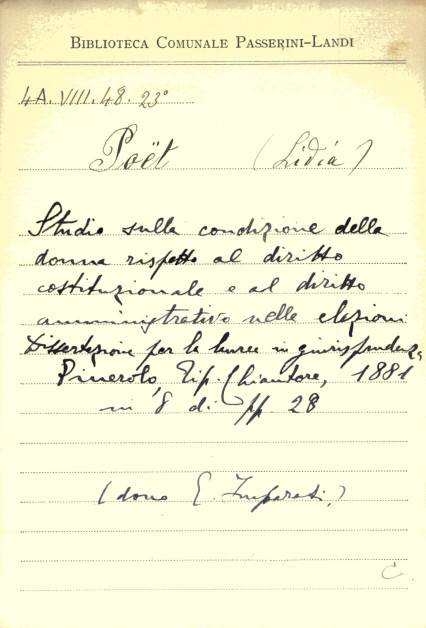 BIBLIOTECA COMUNALE PASSERINI-LANDI
4A. VIII. 48. 23°
Poët (Lidia)
Studio sulla condizione della
donna rispetto al diritto
costituzionale e al diritto
amministrativo nelle elezioni
Dissertazione per la laurea in giurisprudenza,
Pinerolo, Tip. Chiantore, 1881
in 8 di pp. 28
(dono E. Imparati)
C.